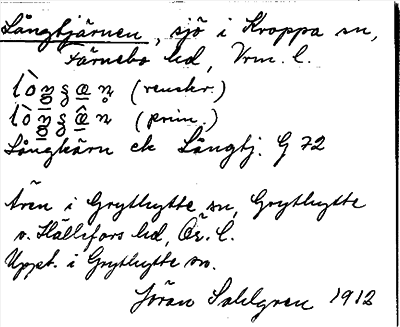 Långtjärnen, sjö i Kroppa sn,
Färnebo hd, Vrm. l.
(renskr.)
(prim.)
Långkärn ek Långtj. G 72
Även i Grythytte sn, Grythytte
o. Hällefors hd, Ör. l.
Uppt. i Grythytte sn.
Jöran Sahlgren 1912